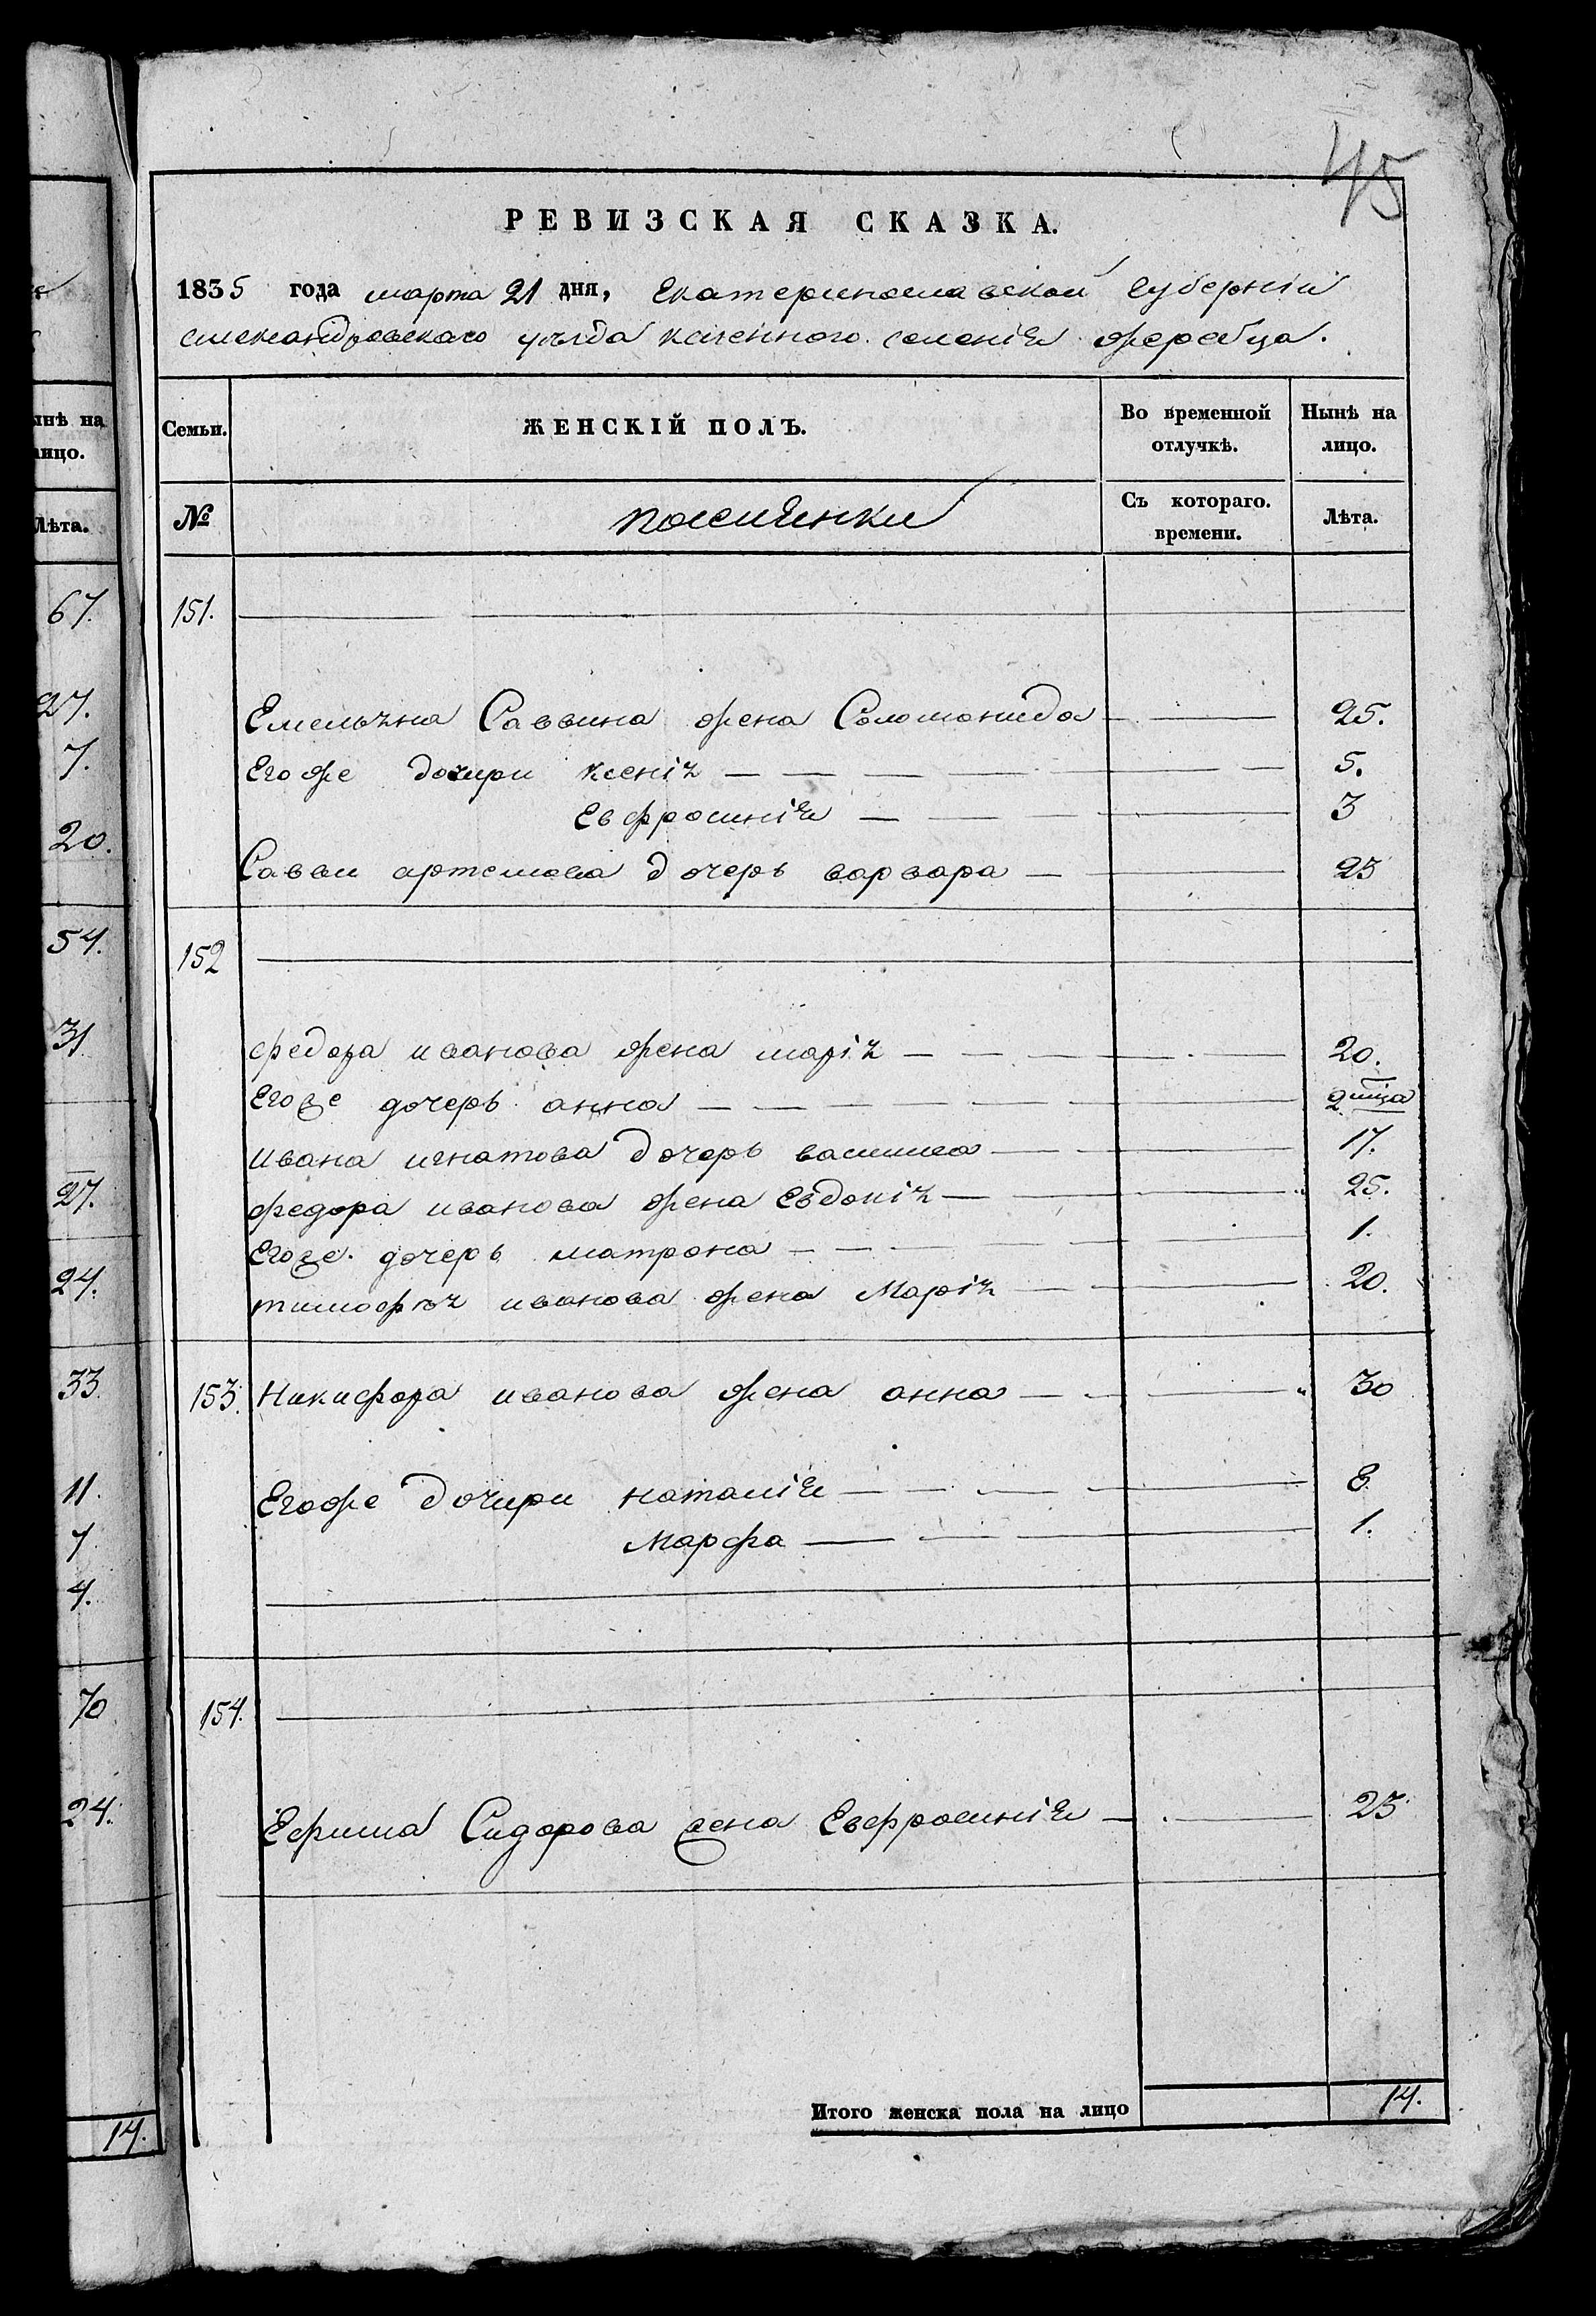 45
РЕВИЗСКАЯ СКАЗКА.
1835 года марта 21 дня, Екатеринославской губерніи
александровскаго уѣзда казенного селенія жеребца.
Семьи. ЖЕНСКІЙ ПОЛЪ. Во временной отлучкѣ. Нынѣ на лицо.
№ поселянки Съ котораго. времени. Лѣта.
151.
Емельяна Саввина жена Соломонида 25.
Егоже дочири ксенія 5.
Евфросинія 3
Саввы артемова дочерь варвара 23
152
федора иванова жена марія 20.
Егоже дочерь анна 2 мца
Ивана игнатова дочерь василиса 17.
федора иванова жена Евдокія 25.
Егоже. дочерь матрона 1.
тимофѣя иванова жена Марія 20.
153. Никифора иванова жена анна 30
Егоже дочири наталія 8.
Марфа 1.
154.
Ефима Сидорова жена Евфросинія 23
Итого женска пола на лицо 14.
ынѣ на
лицо.
Лѣта.
67.
27.
7.
20.
54.
31
27.
24.
33.
11.
7
4.
70
24.
14.